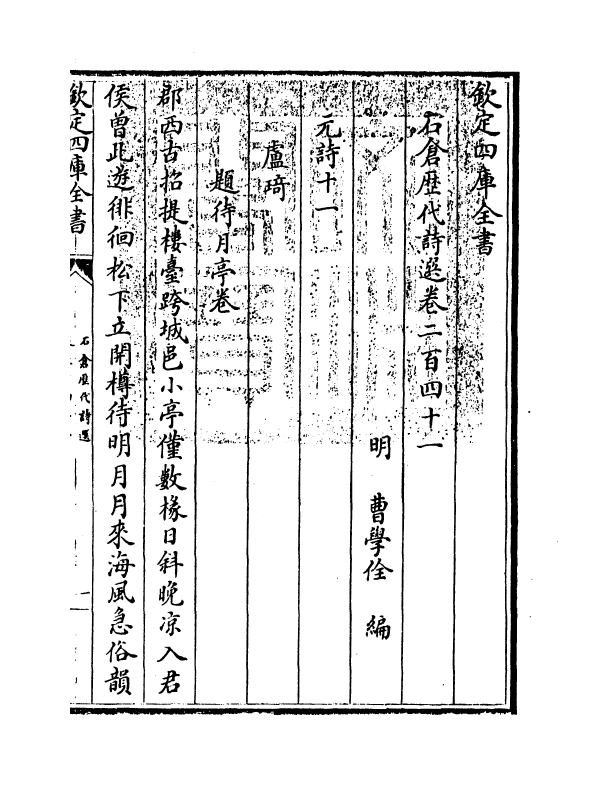 欽定四庫全書
石倉歷代詩選卷二百四十一
明 曹學佺 編
元詩十一
盧琦
題待月亭卷
郡西古招提樓臺跨城邑小亭僅數椽日斜晚凉入君
侯曾此遊徘徊松下立開樽待明月月來海風急俗韻
欽定四庫全書
石倉歷代詩選
一